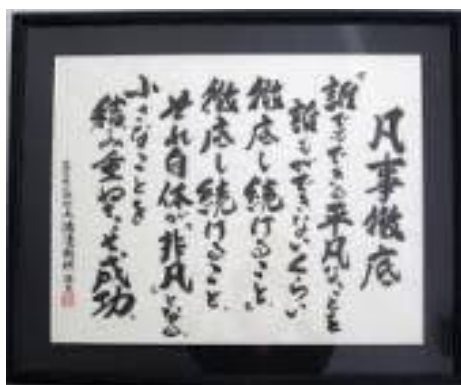 凡事徹底
"誰でもできる平凡なことを
誰もができないくらい
徹底し続けること、"
徹底し続けること、
それ自体が、"非凡"となる、
小さなことを
積み重ねて、ぞ成功、